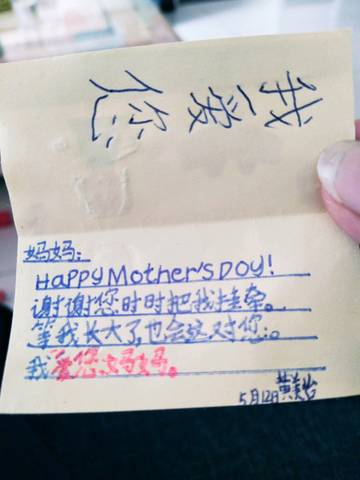 我爱您
妈妈:
HaPPY Mother's DaY!
谢谢您时时把我挂牵。
等我长大了也会这对您。
我爱您妈妈。
5月12日 黄